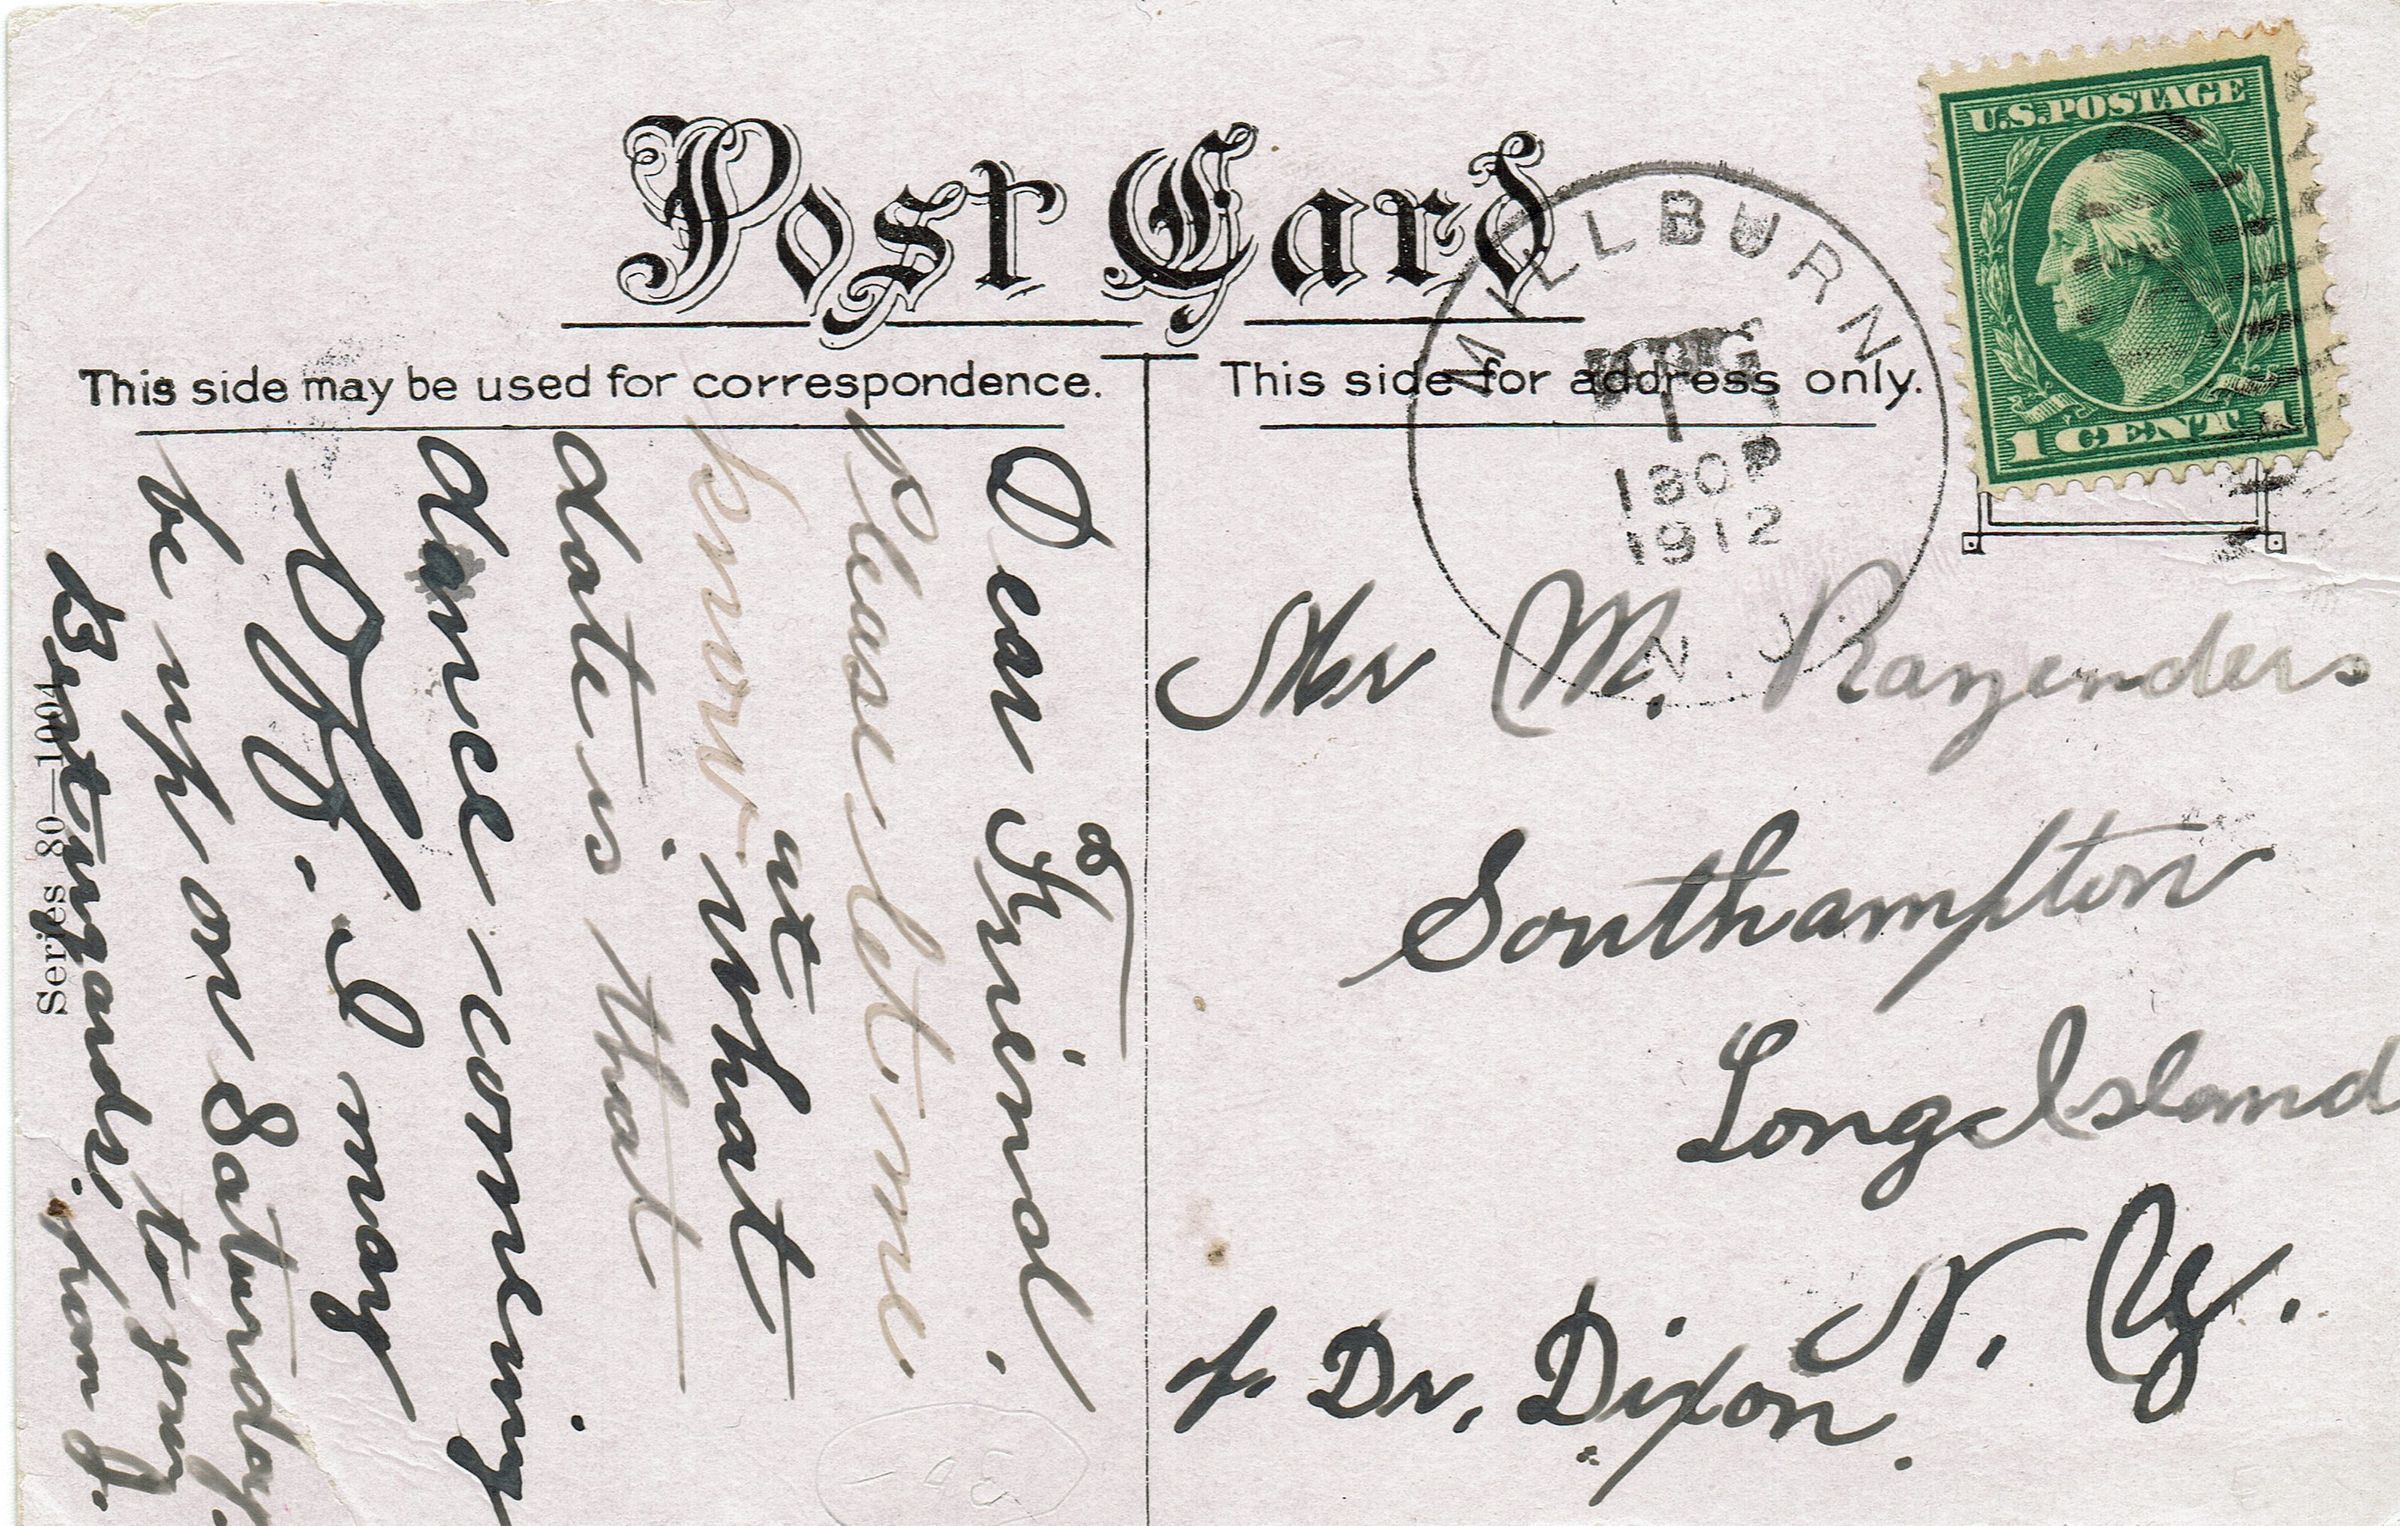 Post Card
This side may be used for correspondence.
This side for address only.
U.S. POSTAGE
1 CENT 1
MILLBURN
AUG
1
1912
N.J.
Mr M. Rayenders
Southampton
Long Island
N. Y.
Dr. Dixon.
Dear Friend.
Please let me
know at what
date is that
dance coming
off. I may
be up on Saturday.
Best regards to you
from J.
Series 80—1004